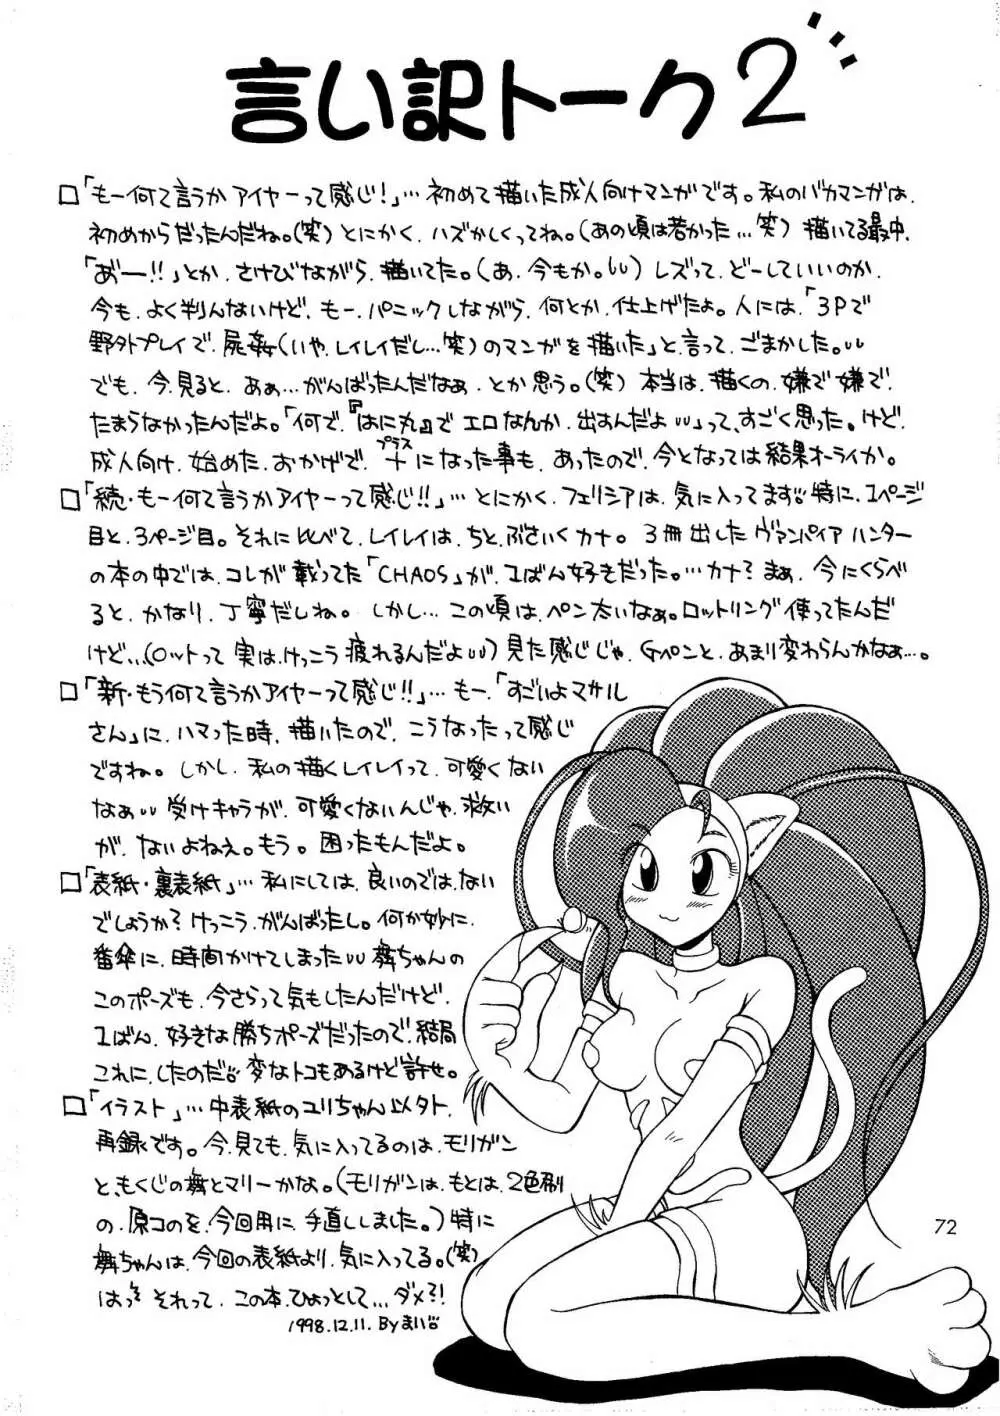 言い訳トーク2
□「もー何て言うかアイヤーって感じ!」…初めて描いた成人向けマンガです。私のバカマンガは、
初めからだったんだね。(笑)とにかく、ハズかしくってね。(あの頃は若かった…笑)描いてる最中、
「あ゛ー!!」とか、さけびながら、描いてた。(あ、今もか。)レズって、どーしていいのか、
今も、よく判んないけど、もー、パニックしながら、何とか、仕上げたよ。人には、「3Pで
野外プレイで、屍姦(いや、レイレイだし…笑)のマンガを描いた」と、言って、ごまかした。
でも、今、見ると、あぁ…がんばったんだなぁ、とか思う。(笑)本当は、描くの、嫌で嫌で、
たまらなかったんだよ。「何で、『はに丸』で エロなんか、出すんだよ」って、すごく思った。けど、
成人向け、始めた、おかげで、プラス+になった事も、あったので、今となっては結果オーライか。
□「続・もー何て言うかアイヤーって感じ!!」…とにかく、フェリシアは、気に入ってます。特に、1ページ
目と、3ページ目。それに比べて、レイレイは、ちと、ぶさいくカナ。3冊出したヴァンパイアハンター
の本の中では、コレが載ってた「CHAOS」が、1ばん好きだった。…カナ?まぁ、今にくらべ
ると、かなり、丁寧だしね。しかし…この頃は、ペン太いなぁ。ロットリング使ってたんだ
けど…(ロットって実は、けっこう疲れるんだよ)見た感じじゃ、Gペンと、あまり変わらんかなぁ…。
□「新・もう何て言うかアイヤーって感じ!!」…もー、「すごいよマサル
さん」に、ハマった時、描いたので、こうなったって感じ
ですね。しかし、私の描くレイレイって、可愛くない
なぁ 受けキャラが、可愛くないんじゃ、救い
が、ないよねえ。もう。困ったもんだよ。
□「表紙・裏表紙」…私にしては、良いのでは、ない
でしょうか?けっこう、がんばったし。何か妙に
番傘に、時間かけてしまった 舞ちゃんの
このポーズも、今さらって気もしたんだけど、
1ばん、好きな勝ちポーズだったので、結局
これに、したのだ。変なトコもあるけど許せ。
□「イラスト」…中表紙のユリちゃん以外、
再録です。今、見ても、気に入ってるのは、モリガン
と、もくじの舞とマリーかな。(モリガンは、もとは、2色刷
の、原コのを、今回用に、手直ししました。)特に
舞ちゃんは、今回の表紙より、気に入ってる。(笑)
はっ それって、この本、ひょっとして…ダメ?!
1998.12.11. By まい
72